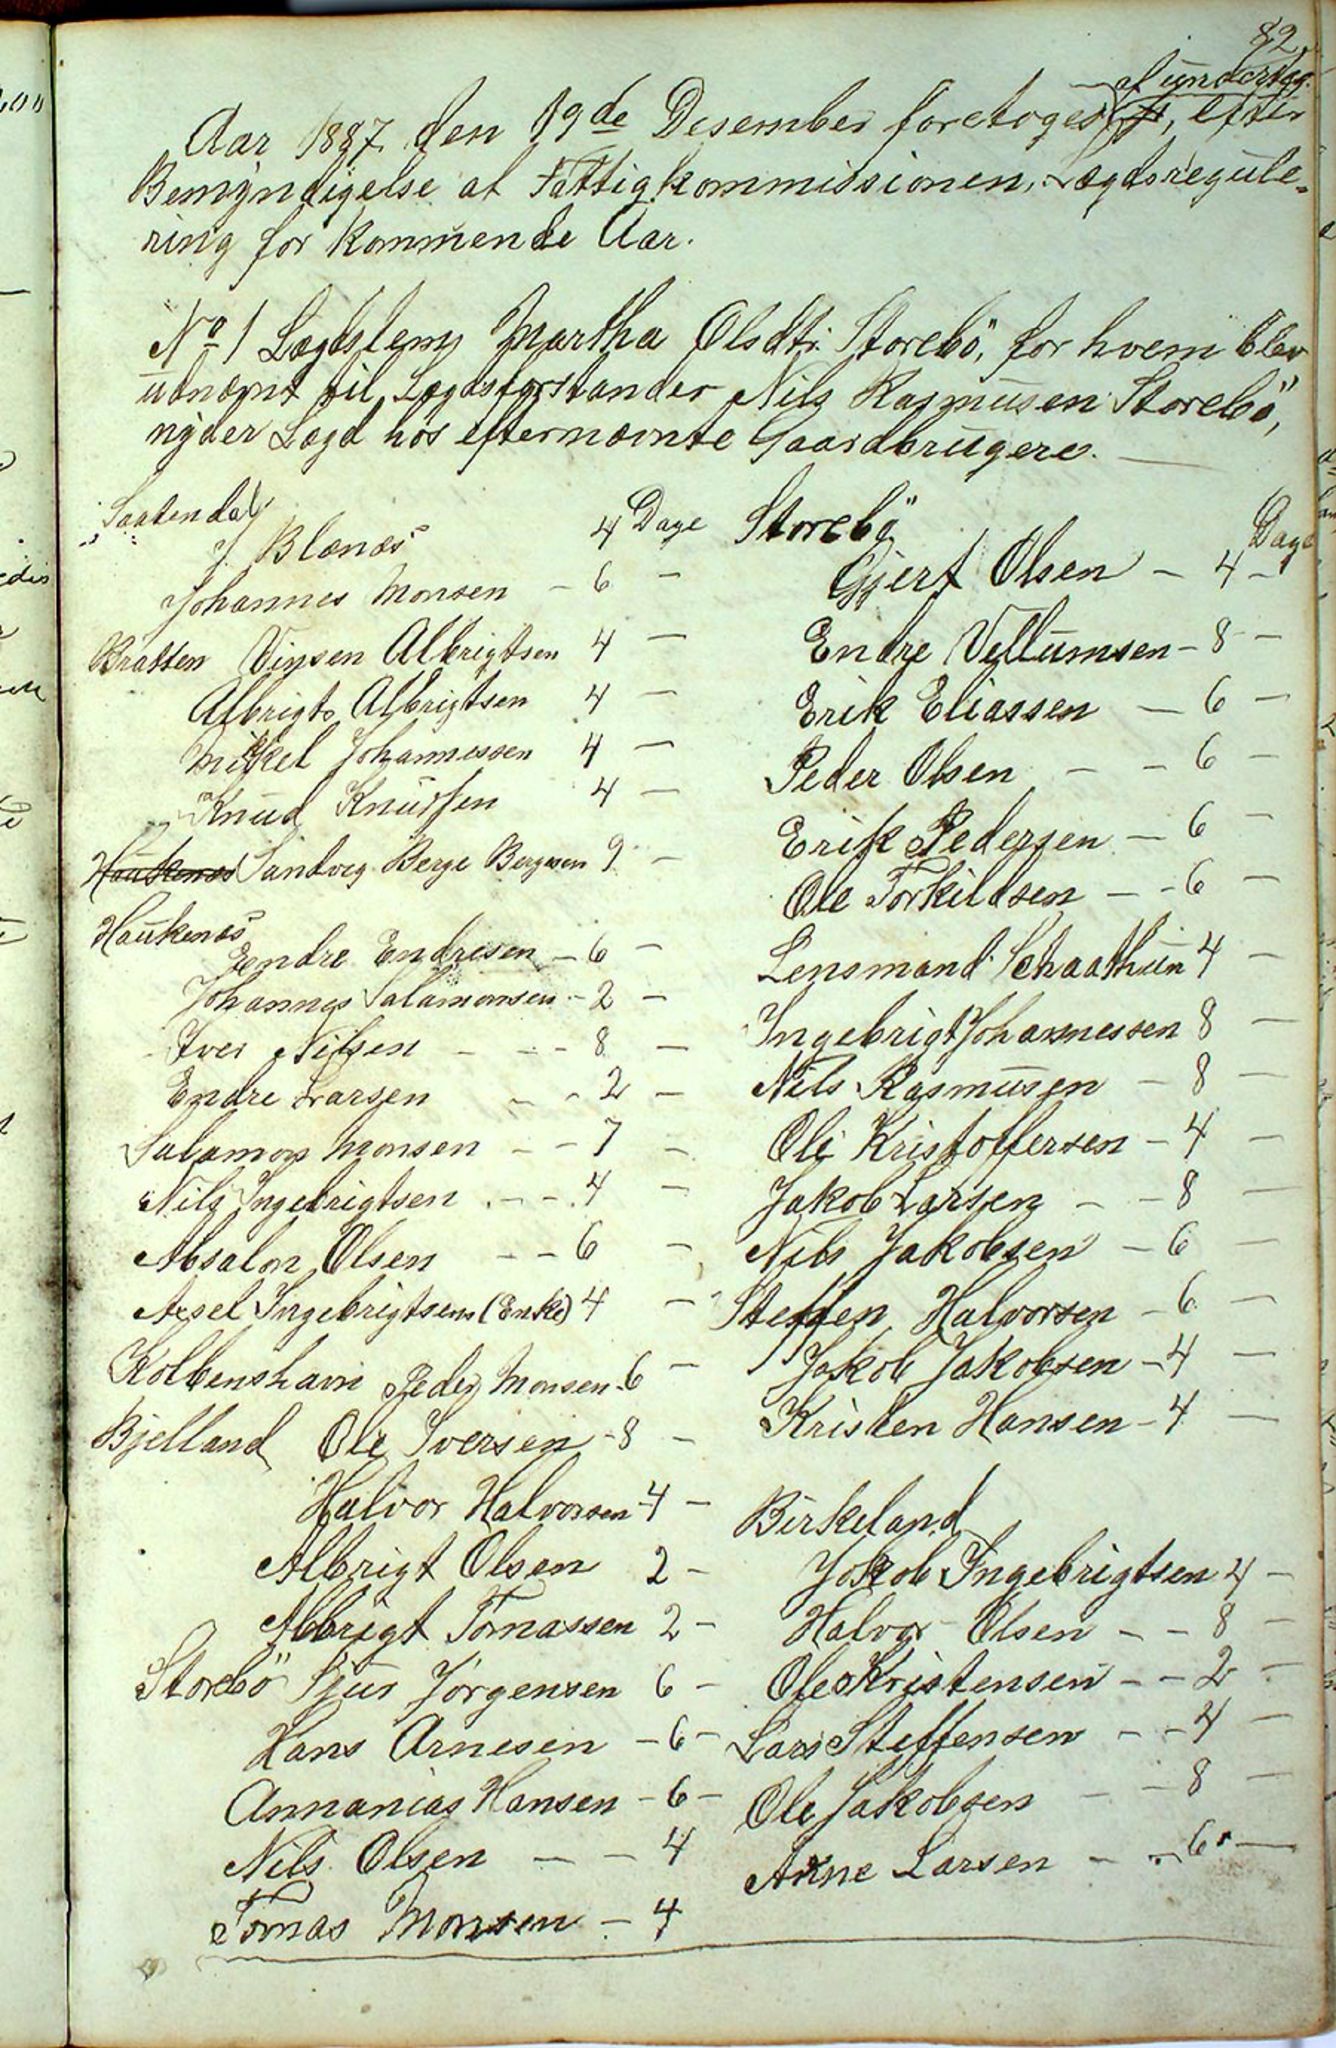 82
af undertegn.
Aar 1887 den 19de Desember foretoges, efter
Bemyndigelse af Fattigkommissionen, Lægdsregule-
ring for kommende Aar.
No 1 Lægdslem Martha Olsdtr. Storebö, for hvem blev
udnævnt til Lægdsforstander Nils Rasmusen Storebö,
nyder Lægd hos efternævnte Gaardbrugere.
Saatendal
J. Blænæs 4 Dage
Johannes Monsen - 6 -
Bratten Vinsen Albrigtsen 4 -
Albrigt Albrigtsen 4 -
Mikkel Johannessen 4 -
Knud Knudsen 4 -
Haukenæs Sandvig Berge Bergesen 9 -
Haukenæs
Endre Endresen - 6 -
Johannes Salamonsen - 2 -
Iver Nilsen - - - 8 -
Endre Larsen - - 2 -
Salamon Monsen - - 7 -
Nils Ingebrigtsen - - 4 -
Absalon Olsen - - 6 -
Axsel Ingebrigtsens (Enke) 4 -
Kolbenshavn Peder Monsen - 6 -
Bjelland Ole Iversen - 8 -
Halvor Halvorsen - 4 -
Albrigt Olsen 2 -
Albrigt Tomassen 2 -
Storebö Sjur Jörgensen 6 -
Hans Arnesen - 6 -
Annanias Hansen - 6 -
Nils Olsen - - 4
Tomas Monsen - 4
Storebö Dage
Gjert Olsen - 4 -
Endre Vellumsen - 8 -
Erik Eliassen - 6 -
Peder Olsen - - 6 -
Erik Pedersen - 6 -
Ole Torkildsen - - 6 -
Lensmand Schaathun 4 -
Ingebrigt Johannessen 8 -
Nils Rasmusen - 8 -
Ole Kristoffersen - 4 -
Jakob Larsen - - 8 -
Nils Jakobsen - 6 -
Steffen Halvorsen - 6 -
Jakob Jakobsen - 4 -
Kristen Hansen - 4 -
Birkeland
Jakob Ingebrigtsen 4 -
Halvor Olsen - - 8 -
Ole Kristensen - - 2 -
Lars Steffensen - - 4 -
Ole Jakobsen - - 8 -
Arne Larsen - - 6 -